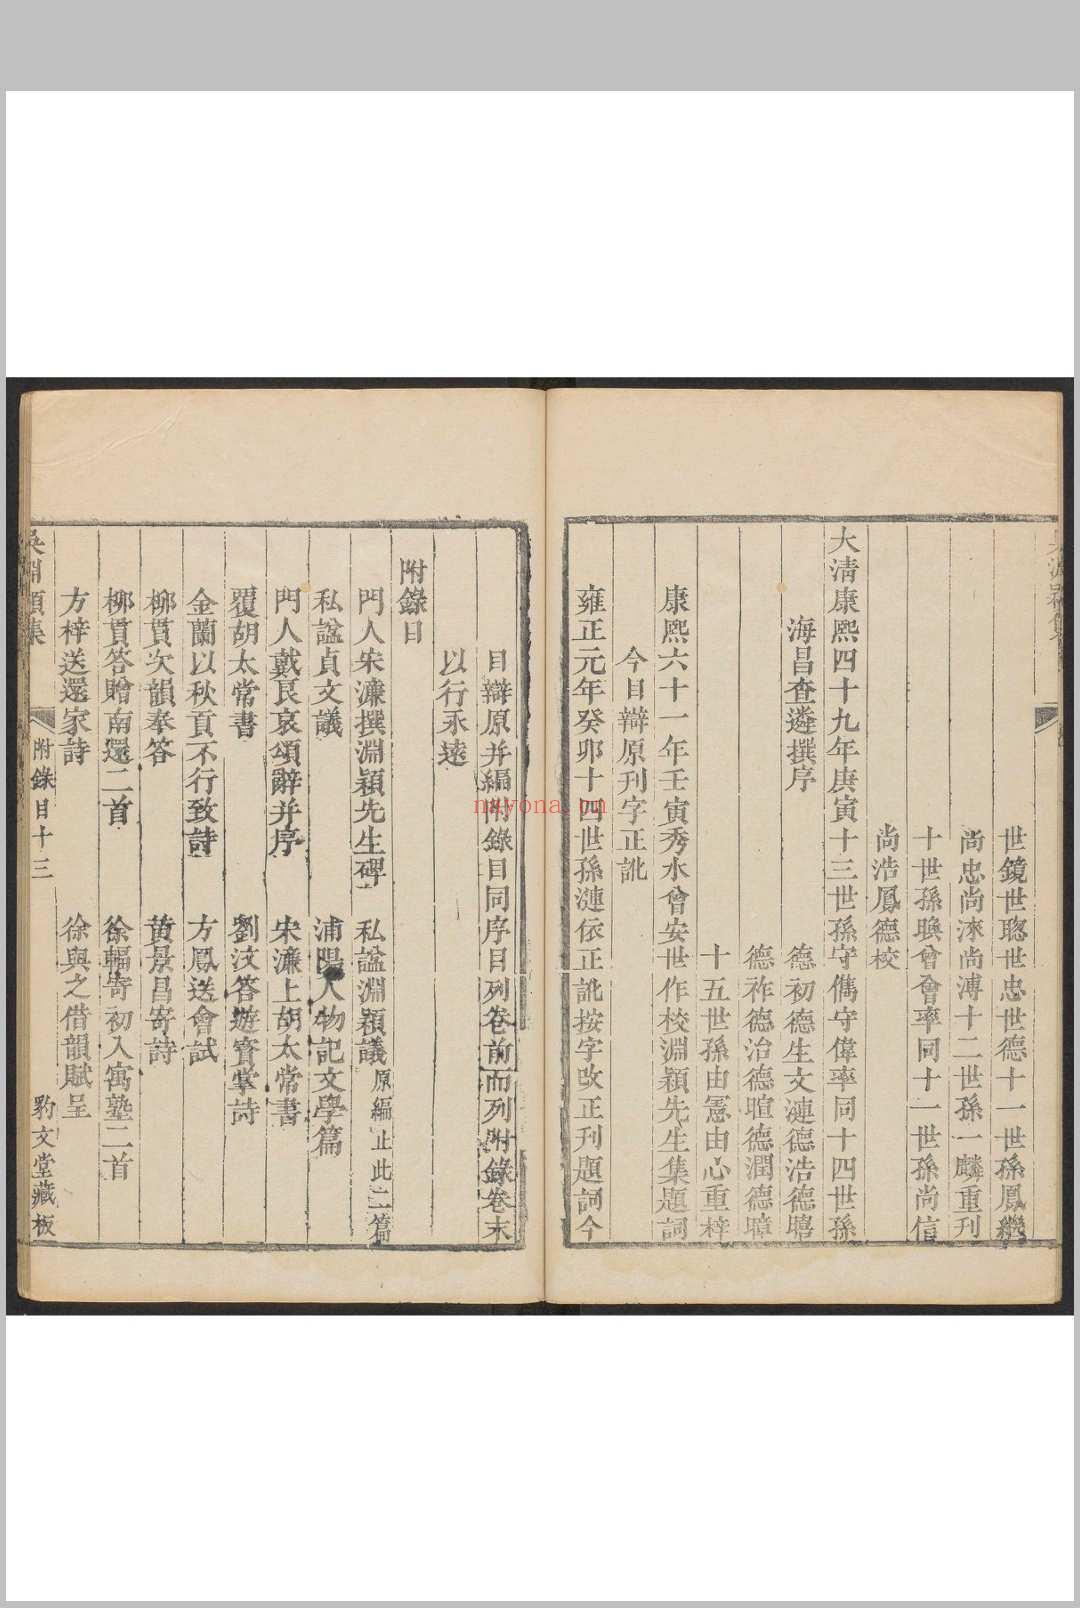 世鏡世聰世忠世德十一世孫鳳機
尚忠尚淶尚溥十二世孫一麟重刊
十世孫暎會會率同十一世孫尚信
尚浩鳳德校
大清康熙四十九年庚寅十三世孫守儁守偉率同十四世孫
海昌查遴撰序 德初德生文漣德浩德曔
德祚德治德暄德潤德暲
十五世孫由憲由心重梓
康熙六十一年壬寅秀水曾安世作校淵穎先生集題詞
今目辯原刊字正訛
雍正元年癸卯十四世孫漣依正訛按字改正刊題詞今
目辯原并編附錄目同序目列卷前而列附錄卷末
以行永遠
附錄目
門人宋濂撰淵穎先生碑 私諡淵穎議原編止此二篇
私諡貞文議 浦陽人物記文學篇
門人戴良哀頌辭并序 宋濂上胡太常書
覆胡太常書 劉汶答遊寶掌詩
金蘭以秋貢不行致詩 方鳳送會試
柳貫次韻奉答 黄景昌寄詩
柳貫答贈南還二首 徐輻寄初入寓塾二首
方梓送還家詩 徐與之借韻賦呈
吳淵穎集 附錄目十三 豹文堂藏板
nayona.cn